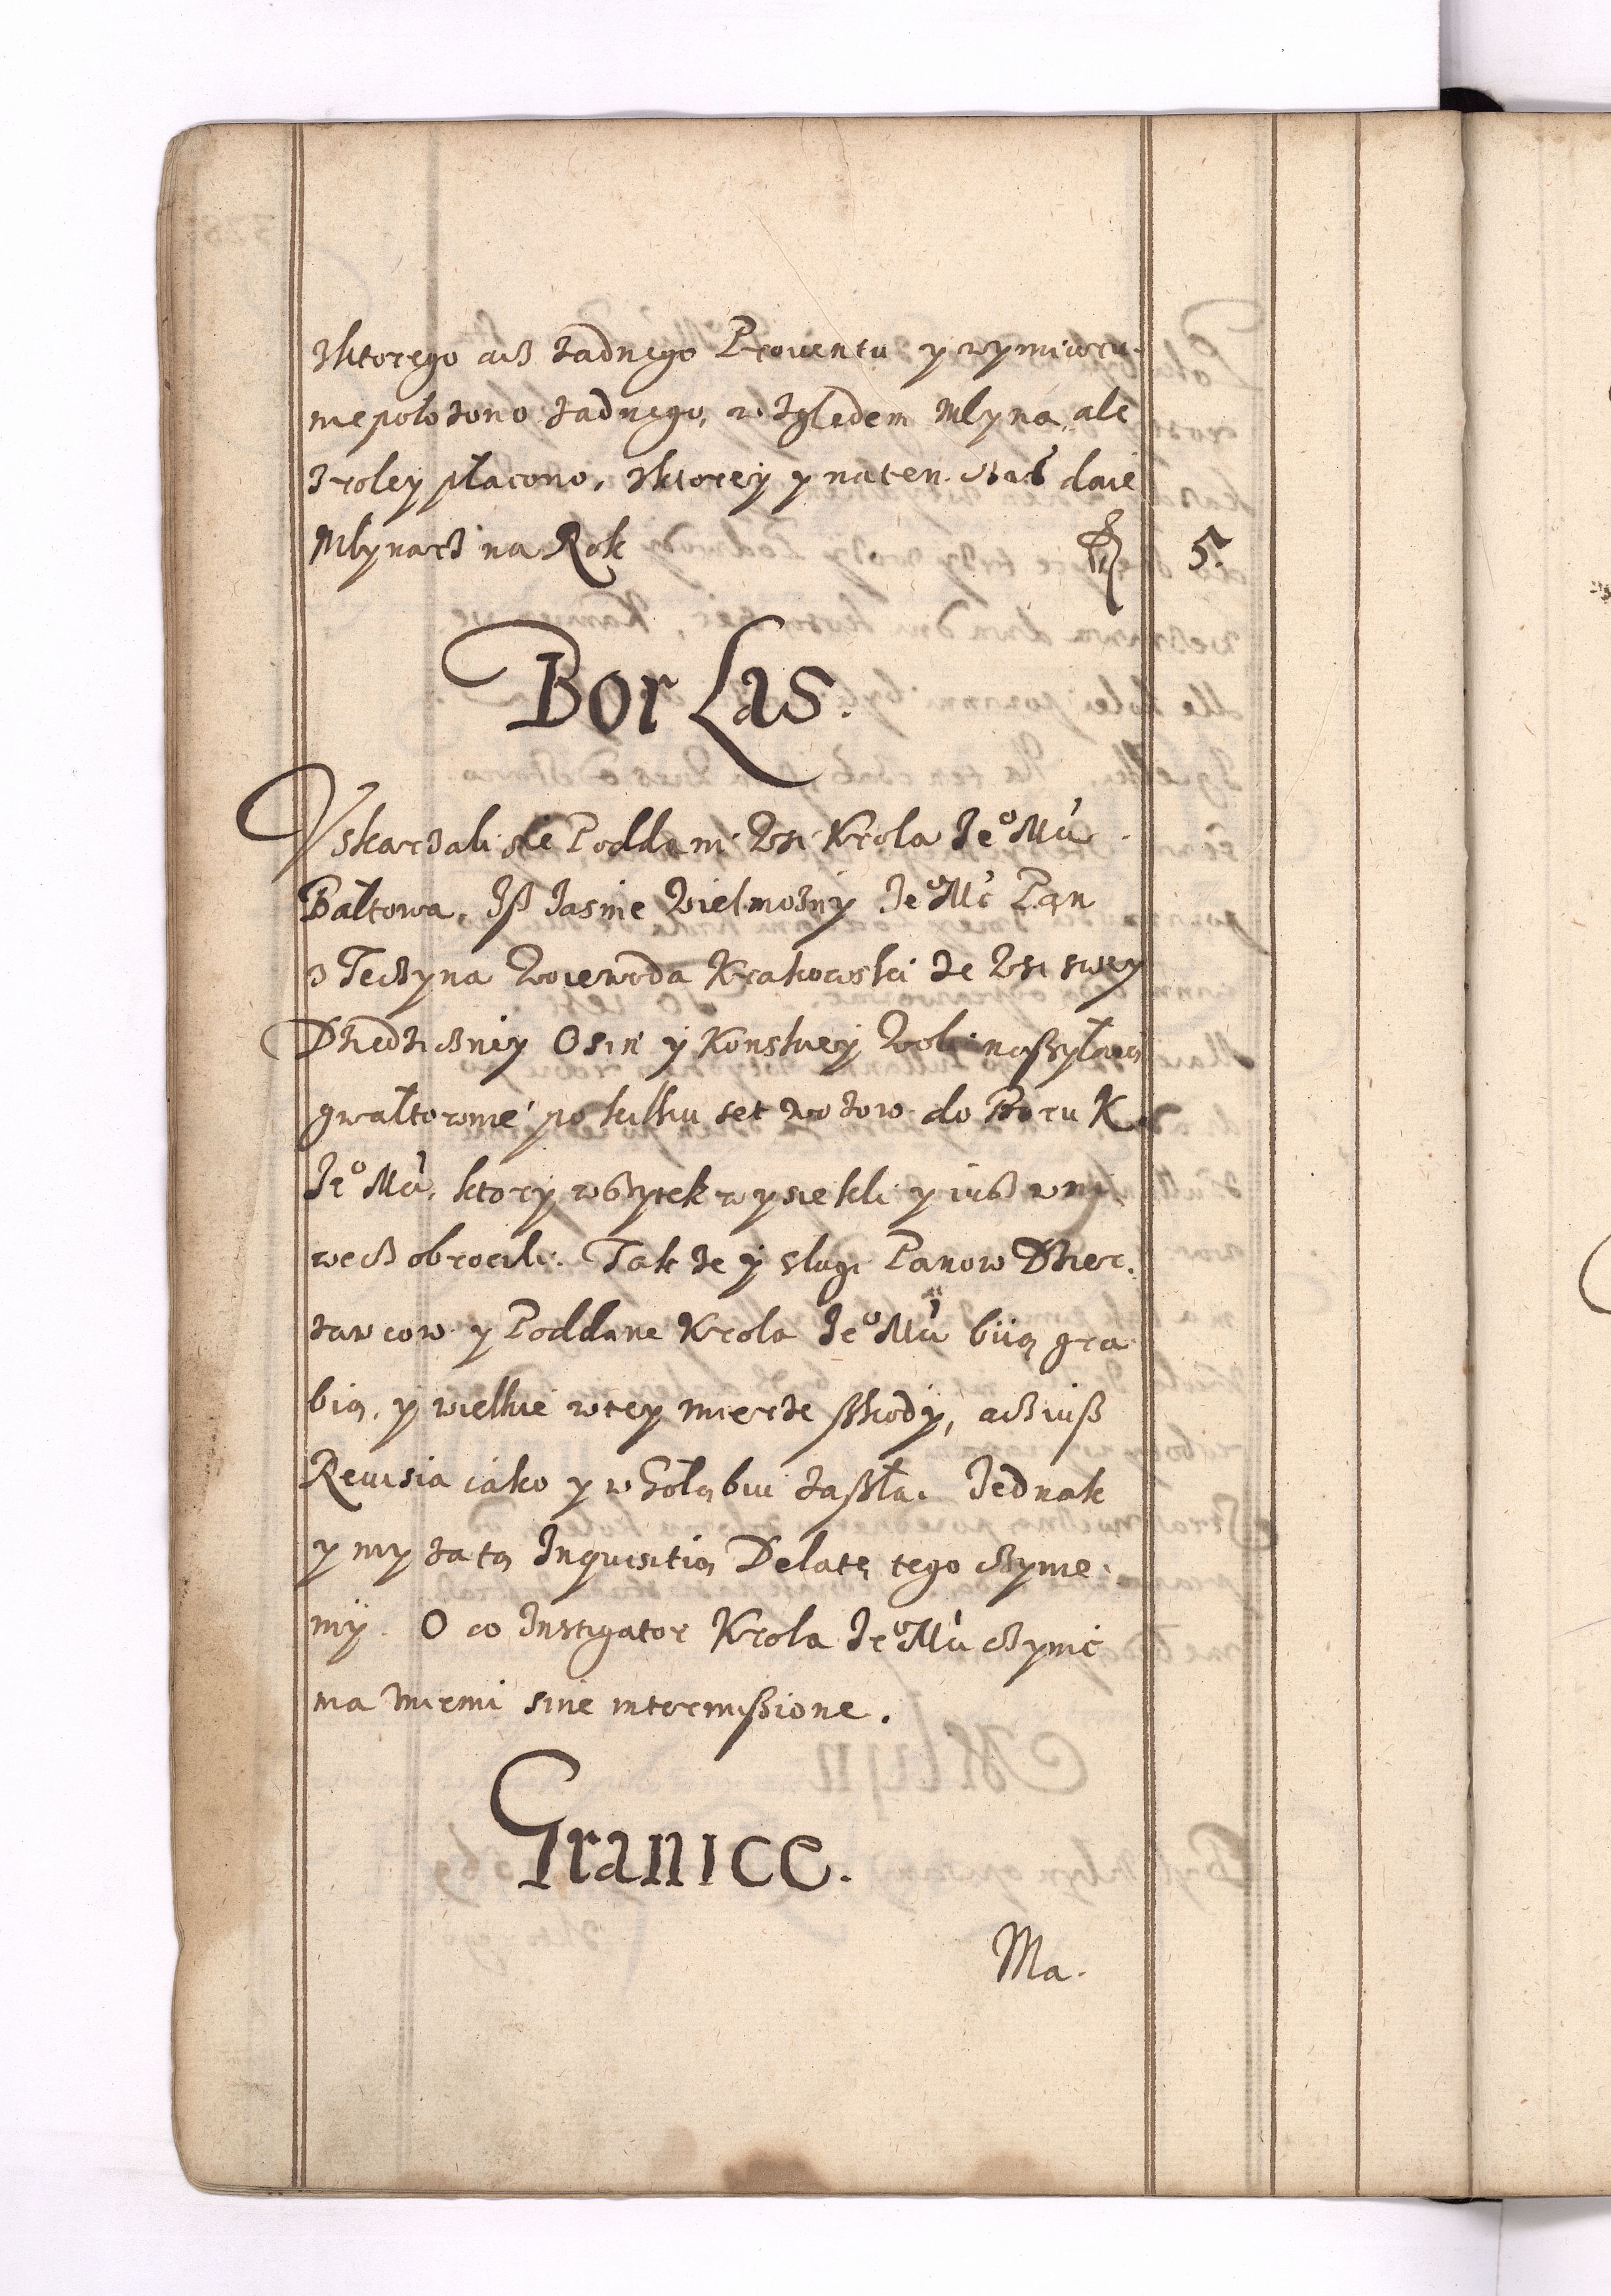 zktorego acz żadnego Prouentu y wymiaru
niepołożono żadnego, względem Młyna, ale
zroley płacono, zktorey y naten czas daie
Młynarz na Rok fl 5.
Bor Las.
Vskarzali się Poddani Wsi Krola Je⁰ Mći
Bałtowa, Iß Iasnie Wielmożny Je⁰ Mć Pan
z Teczyna Woiewoda Krakowski ze Wsi swey
Dziedziczney Osin y Konskiey Woli naßyłaią
gwałtownie po kilku set wozow do Boru K
Je⁰ Mći, ktory wszytek wysiekli y iusz wni
wecz obrocili. Także y slugi Panow Dzier
zawcow y Poddane Krola Je⁰ Mći biią gra
bią, y wielkie wtey mierze ßkody, acz iuß
Reuisia iako y w Gołąbiu zaßła. Jednak
y my zatą Inquisitią Delatę tego czynie
my. O co Instigator Krola Je⁰ Mći czynić
ma zniemi sine intermißione.
Granice.
Ma.